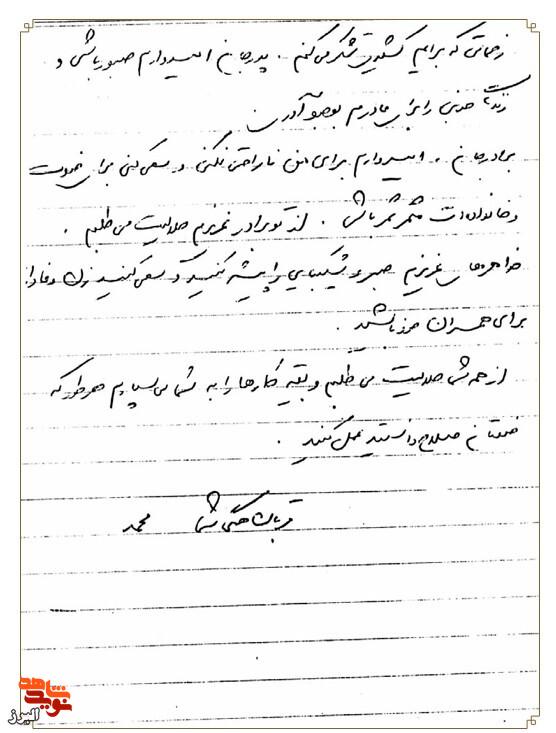 زحماتی که برایم کشیدی تشکر می‌کنم . پدرجان امیدوارم صبور باشی و
زندگی خوبی را برای مادرم بوجود آوری
برادرجان ، امیدوارم برای من ناراحتی نکنی و سعی کنی برای خودت
و خانواده‌ات مثمرثمر باشی . از تو برادر عزیزم حلالیت می‌طلبم .
خواهرهای عزیزم صبر و شکیبایی را پیشه کنید و سعی کنید زن وفادار
برای همسران خود باشید .
از همه شما حلالیت می طلبم و بقیه کارها را به شما می‌سپارم هر طور که
خودتان صلاح دانستید عمل کنید .
قربان همگی شما محمد
نوید شاهد
البرز